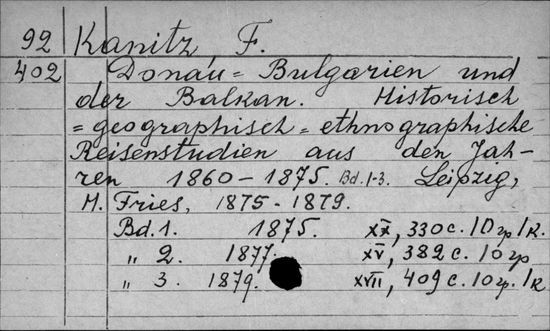 92 Kanitz, F.
402 Donau=Bulgarien und
der Balkan. Historisch
=geographisch=ethnographische
Reisenstudien aus den Jah-
ren 1860-1875. Bd. 1-3. Leipzig,
H. Fries, 1875-1879.
Bd. 1. 1875. XX, 330 c. 10 гр. 1 к.
„ 2. 1877. XV, 382 c. 10 гр
„ 3. 1879. XVII, 409 c. 10 гр. 1 к.